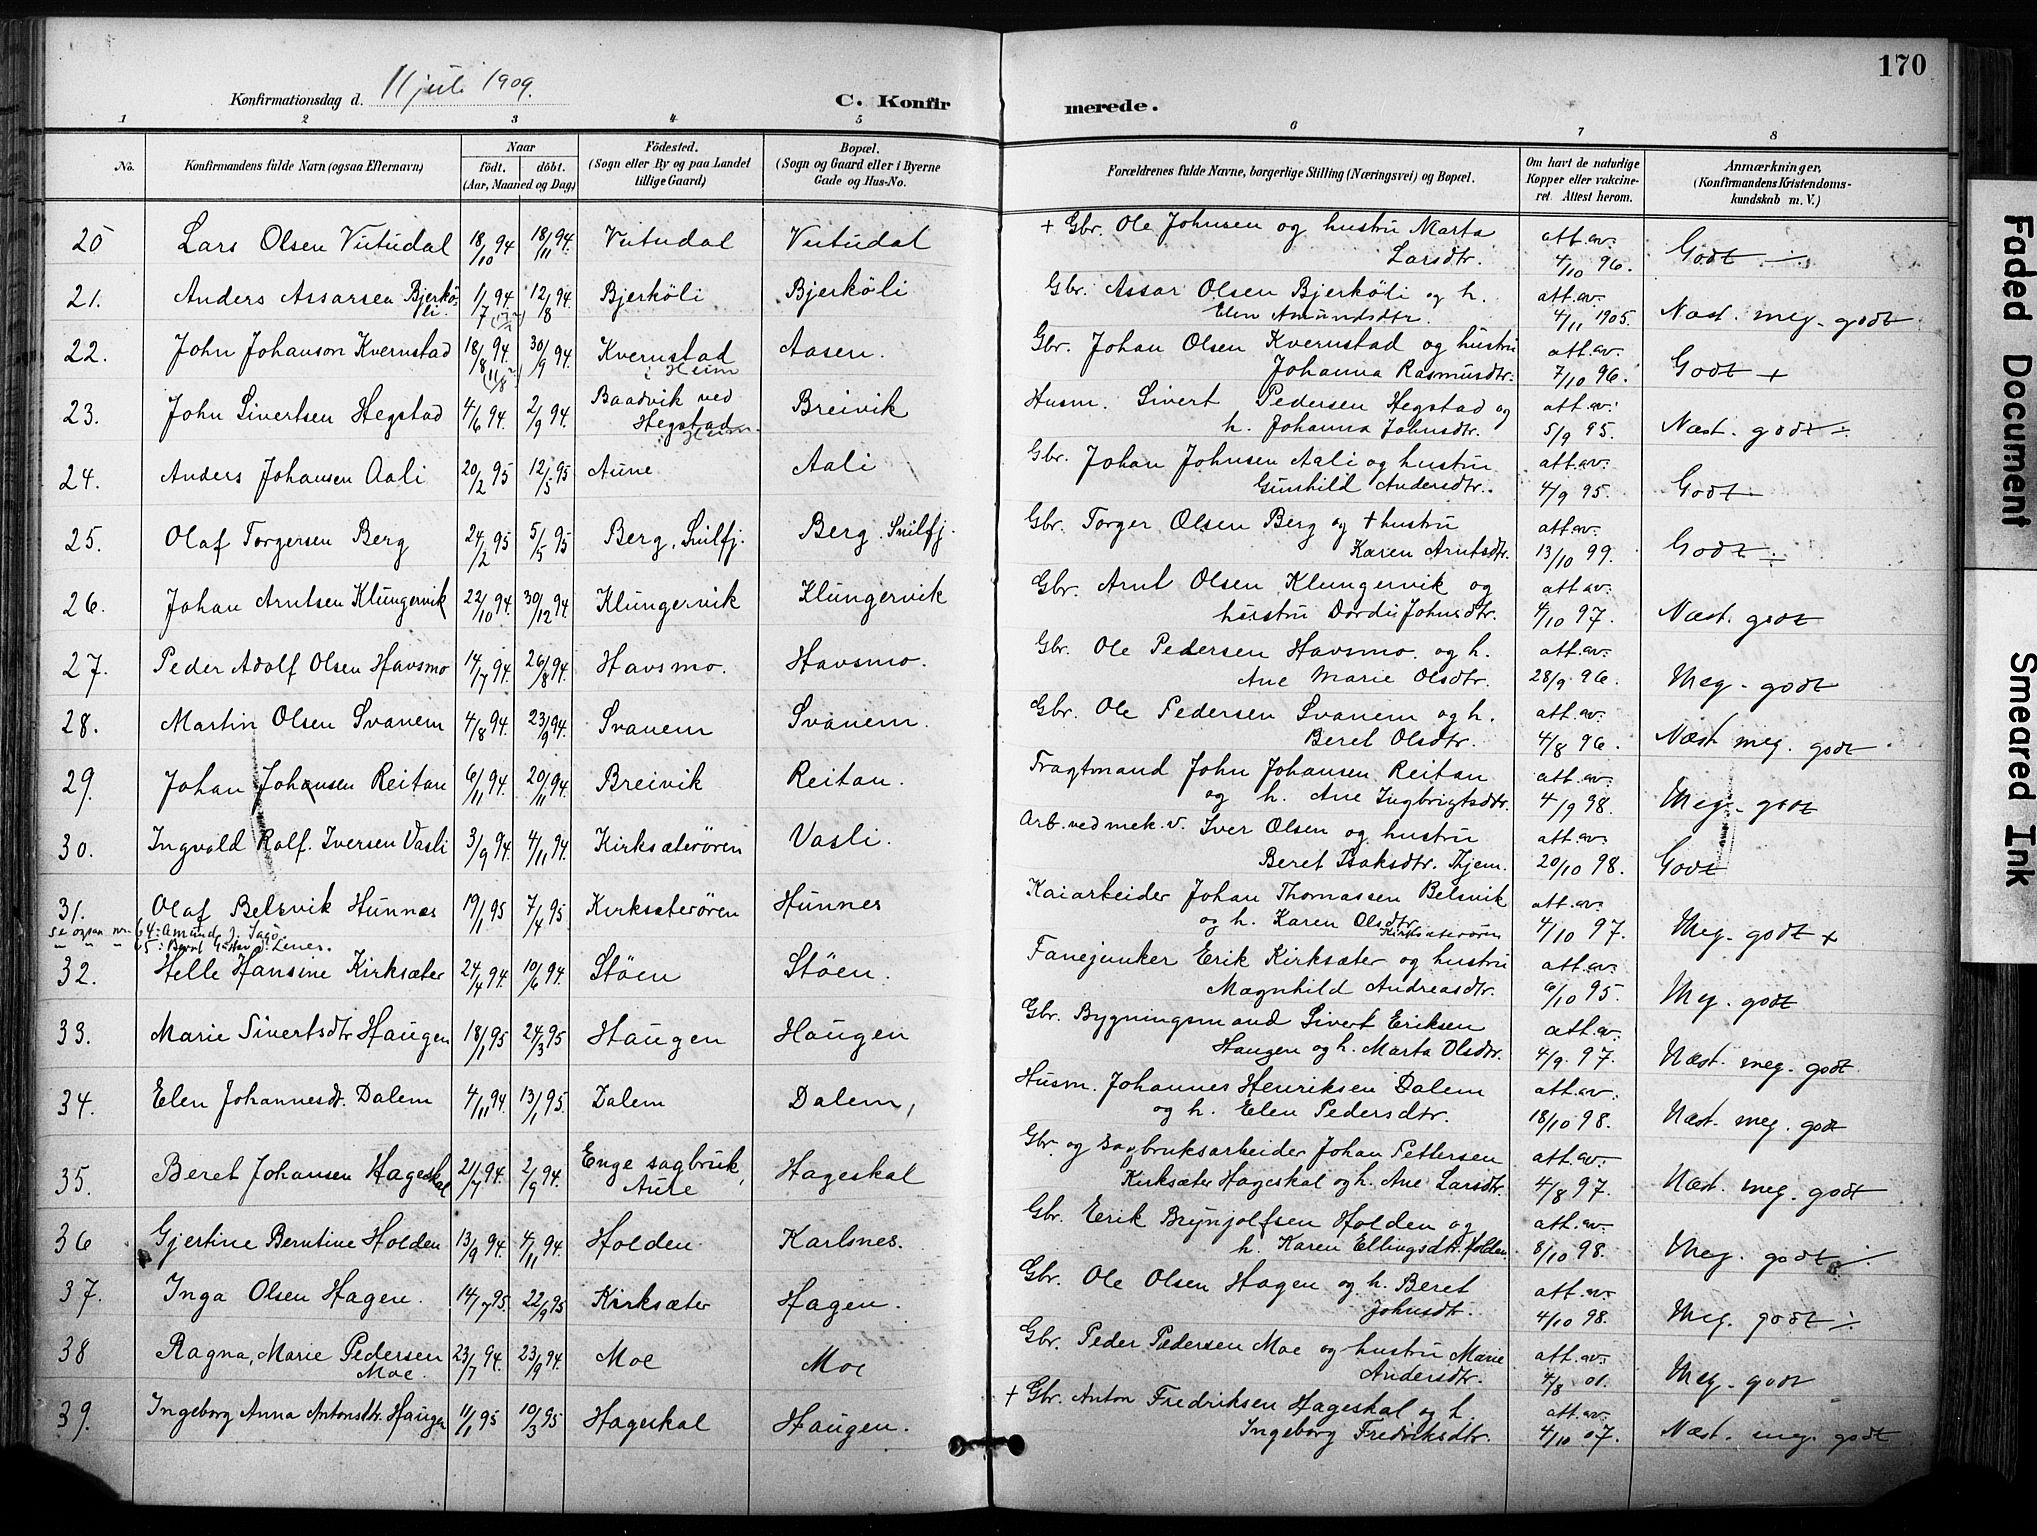 170
Konfirmationsdag d. 11 juli 1909.
C. Konfirmerede.
1 2 3 4 5 6 7 8
No. Konfirmandens fulde Navn (ogsaa Efternavn) Naar födt. döbt. (Aar, Maaned og Dag) Födested. (Sogn eller By og paa Landet tillige Gaard) Bopæl. (Sogn og Gaard eller i Byerne Gade og Hus-No. Forældrenes fulde Navne, borgerlige Stilling (Næringsvei) og Bopæl. Om havt de naturlige Kopper eller vakcineret. Attest herom. Anmærkninger. (Konfirmandens Kristendomskundskab m. V.)
20 Lars Olsen Vutudal 18/10 94 18/11 94. Vutudal Vutudal + Gbr. Ole Johnsen og hustru Marta Larsdtr. att. av. 4/10 96. Godt
21. Anders Assarsen Bjerköli 1/7 94 12/8 94. Bjerköli Bjerköli Gbr. Assar Olsen Bjerköli og h. Elen Amundsdtr. att. av. 4/11 1905. Næst. meg. godt
22. John Johanson Kvernstad 18/8 94. 30/9 94. Kvernstad i Heim Aasen. Gbr. Johan Olsen Kvernstad og hustru Johanna Rasmusdtr. att. av. 7/10 96. Godt +
23. John Sivertsen Hegstad 4/6 94. 2/9 94. Baadvik ved Hegstad Heim. Breivik Husm. Sivert Pedersen Hegstad og h. Johanna Johnsdtr. att. av. 5/9 95. Næst. godt
24. Anders Johansen Aali 20/2 95 12/5 95 Aune Aali Gbr. Johan Johnsen Aali og hustru Gunhild Andersdtr. att. av. 4/9 95. Godt
25. Olaf Torgersen Berg 24/2 95 5/5 95 Berg, Snilfj. Berg, Snilfj. Gbr. Torger Olsen Berg og + hustru Karen Arntsdtr. att. av. 13/10 99. Godt
26. Johan Arntsen Klungervik 22/10 94. 30/12 94 Klungervik Klungervik Gbr. Arnt Olsen Klungervik og hustru Dordi Johnsdtr. att. av. 4/10 97. Næst. godt
27. Peder Adolf Olsen Havsmo 14/7 94. 26/8 94. Havsmo. Havsmo. Gbr. Ole Pedersen Havsmo. og h. Ane Marie Olsdtr. att. av. 28/9 96. Meg. godt
28. Martin Olsen Svanem 4/8 94. 23/9 94. Svanem Svanem. Gbr. Ole Pedersen Svanem og h. Beret Olsdtr. att. av. 4/8 96. Næst meg. godt
29. Johan Johansen Reitan 6/11 94. 20/11 94. Breivik Reitan. Fragtmand John Johansen Reitan og h. Ane Ingbrigtsdtr. att. av. 4/9 98. Meg. godt
30. Ingvald Rolf. Iversen Vasli 3/9 94. 4/11 94. Kirksæterören Vasli. Arb. ved mek. v. Iver Olsen og hustru Beret Isaksdtr. Thjem. att. av. 20/10 98. Godt
31. Olaf Belsvik Hunnes 19/1 95 7/4 95 Kirksæterören Hunnes Kaiarbeider Johan Thomassen Belsvik og h. Karen Olsdtr Kirksæterören att. av. 4/10 97. Meg. godt +
se ogsaa nr. 64: Amund J. Sagö.
" " " 65: Bernt Gustav J. Lenes.
32. Helle Hansine Kirksæter 24/4 94. 10/6 94. Stöen Stöen. Fanejunker Erik Kirksæter og hustru Magnhild Andreasdtr. att. av. 6/10 95. Meg. godt
33. Marie Sivertsdtr Haugen 18/1 95 24/3 95 Haugen Haugen Gbr. Bygningsmand Sivert Eriksen Haugen og h. Marta Olsdtr. att. av. 4/9 97. Næst. meg. godt.
34. Elen Johannesdt. Dalem 4/11 94. 13/1 95. Dalem Dalem, Husm. Johannes Henriksen Dalem og h. Elen Pedersdtr. att. av. 18/10 98. Næst. meg. godt
35. Beret Johansen Hageskal 21/7 94. 2/9 94. Enge sagbruk, Aure Hageskal Gbr. og Sagbruksarbeider Johan Pettersen Kirksæter Hageskal og h. Ane Larsdtr. att. av. 4/8 97. Næst. meg. godt
36 Gjertine Berntine Holden 13/9 94. 4/11 94. Holden Karlsnes. Gbr. Erik Brynjolfsen Holden og h. Karen Ellingsdtr. Holden. att. av. 8/10 98. Meg. godt
37. Inga Olsen Hagen. 14/7 95. 22/9 95 Kirksæter Hagen. Gbr. Ole Olsen Hagen og h. Beret Johnsdtr. att. av. 4/10 98. Meg. godt
38 Ragna, Marie Pedersen Moe. 23/7 94. 23/9 94. Moe Moe Gbr. Peder Pedersen Moe og hustru Marie Andersdtr. att. av. 4/8 01. Meg. godt
39. Ingeborg Anna Antonsdtr. Haugen 11/1 95 10/3 95 Hageskal Haugen. + Gbr. Anton Fredriksen Hageskal og h. Ingeborg Fredriksdtr. att. av. 4/10 07. Næst. meg. godt
Faded Document
Smeared Ink